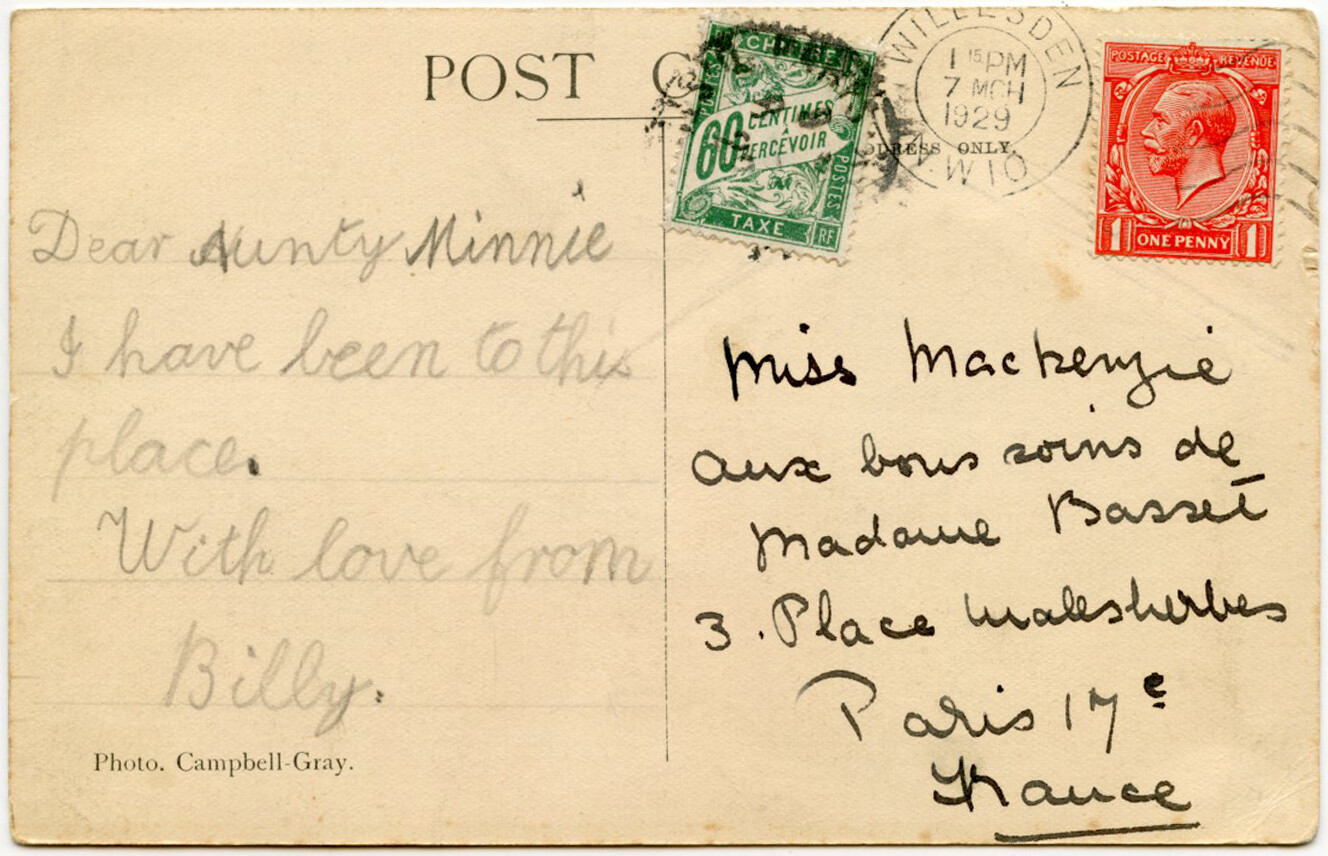 POST
CHIFFRE
POSTES
60 CENTIMES
A
PERCEVOIR
POSTES
TAXE
RF
WILLESDEN
1 15 PM
7 MCH
1929
N.W.10
POSTAGE REVENUE
1 ONE PENNY 1
ADDRESS ONLY.
Dear Aunty Minnie
I have been to this
place.
With love from
Billy.
Photo. Campbell-Gray.
Miss Mackenzie
aux bons soins de
Madame Basset
3. Place Malesherbes
Paris 17e
France